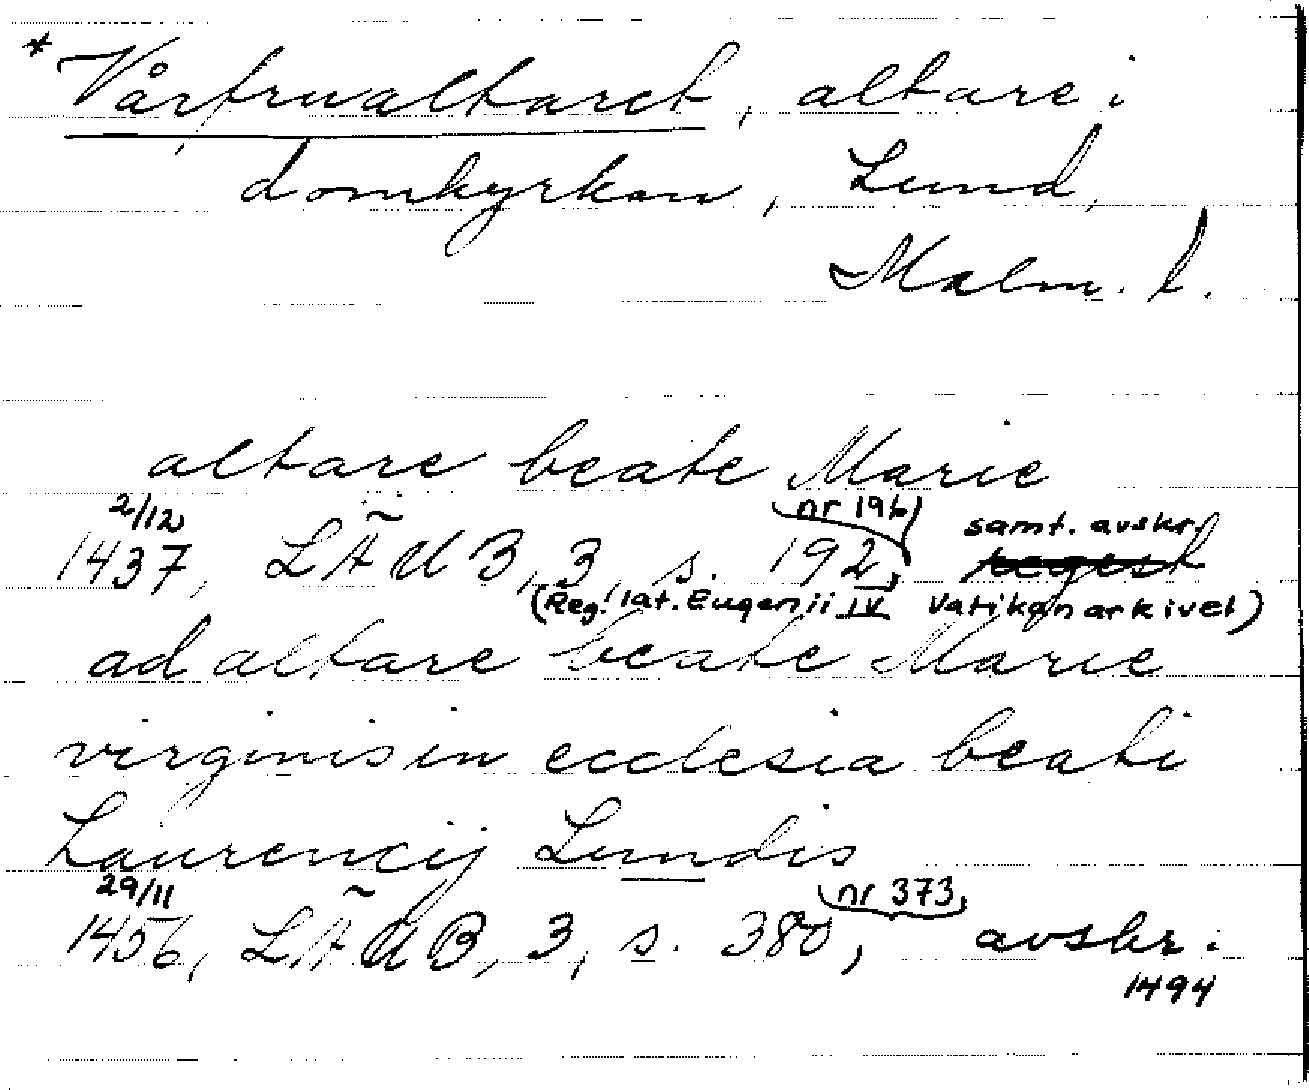 * Vårfrualtaret, altare i
domkyrkan, Lund,
Malm. l.
altare beate Marie
2/12 nr 196, samt. avskr.
1437, LÄUB, 3, s. 192,
(Reg. lat. Eugenii IV Vatikanarkivet)
ad altare beate Marie
virginis in ecclesia beati
Laurencij Lundis
29/11 nr 373,
1456, LÄUB, 3, s. 380, avskr.
1494